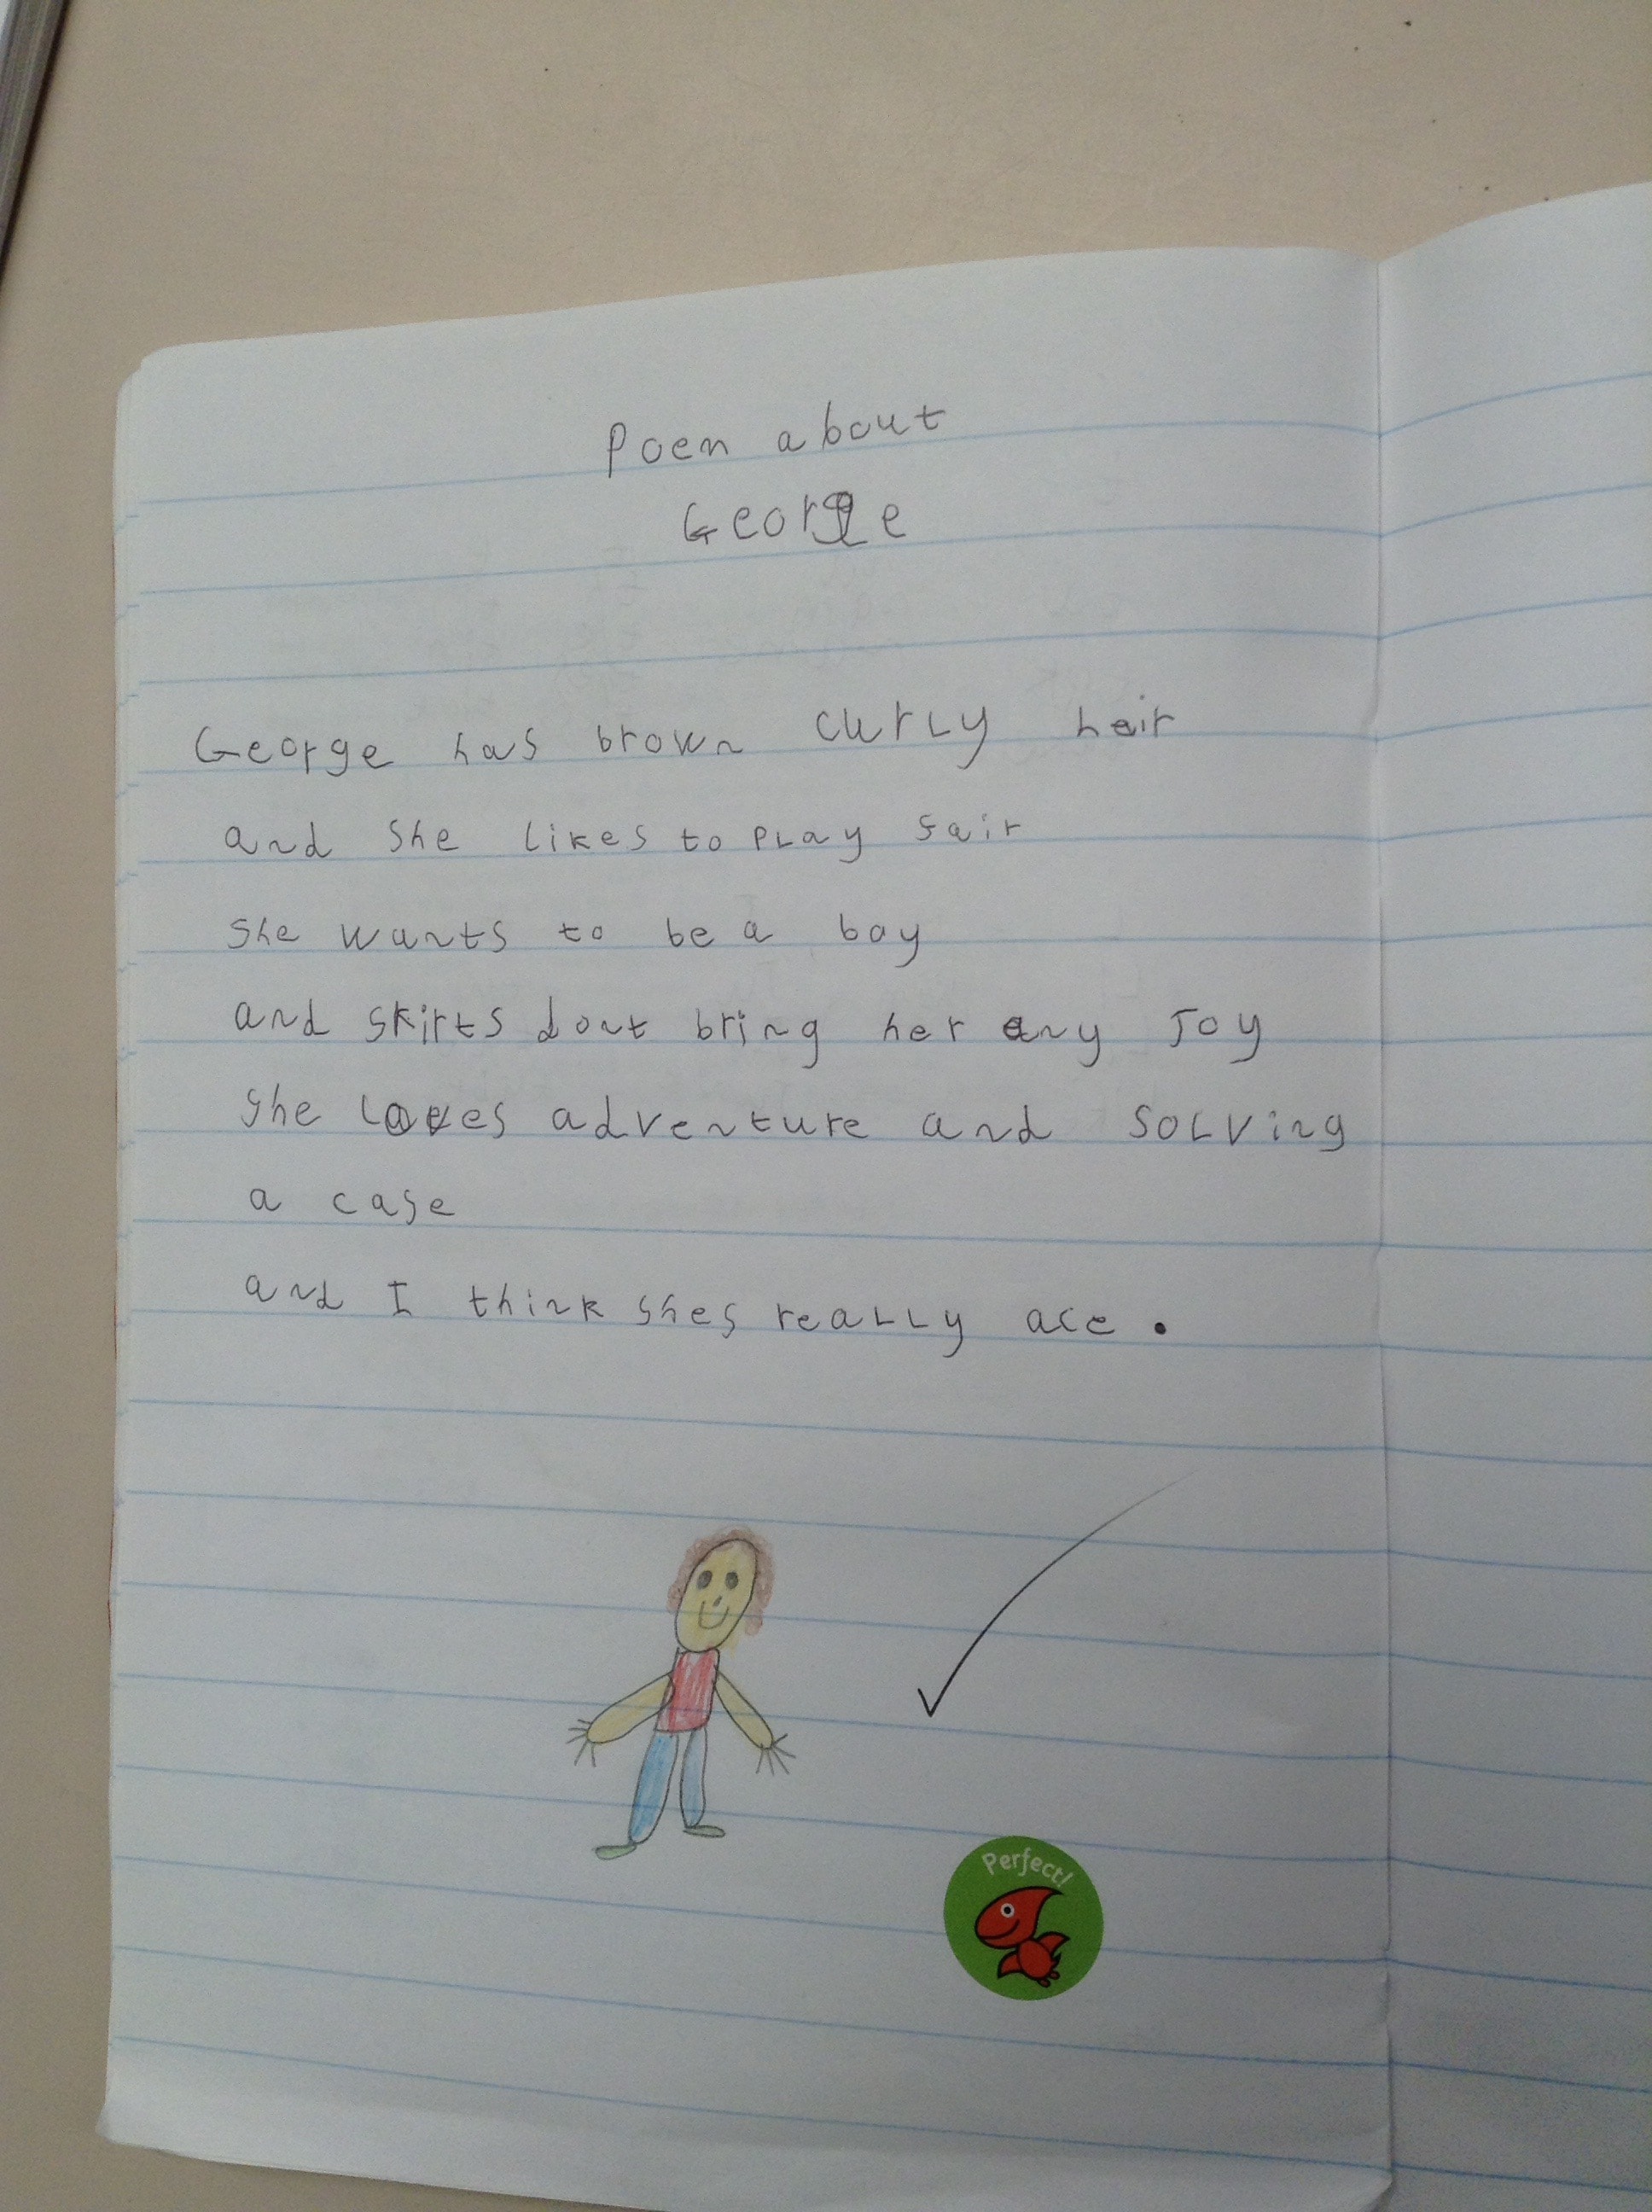 Poen about
George
George has brown curly hair
and she likes to play fair
she wants to be a boy
and skirts dont bring her any Joy
she loves adventure and solving
a case
and I think shes really ace.
Perfect!